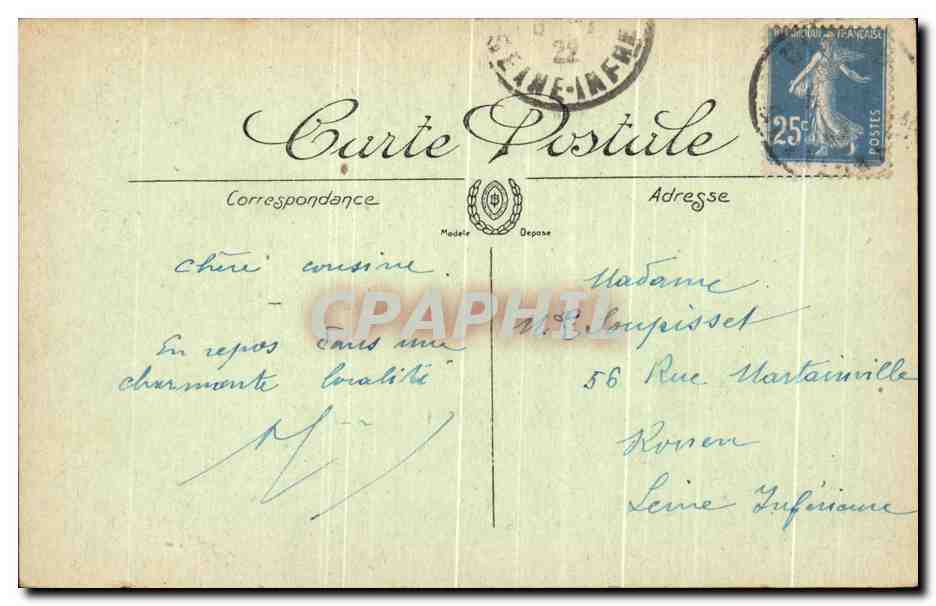 22
SEINE-INFRE
REPUBLIQUE FRANÇAISE
25c
POSTES
Carte Postale
Correspondance
Adresse
Modèle Déposé
Chère cousine
En repos dans une
charmante localité
Madame
56 Rue Martainville
Rouen
Seine Inférieure
CPAPHIL